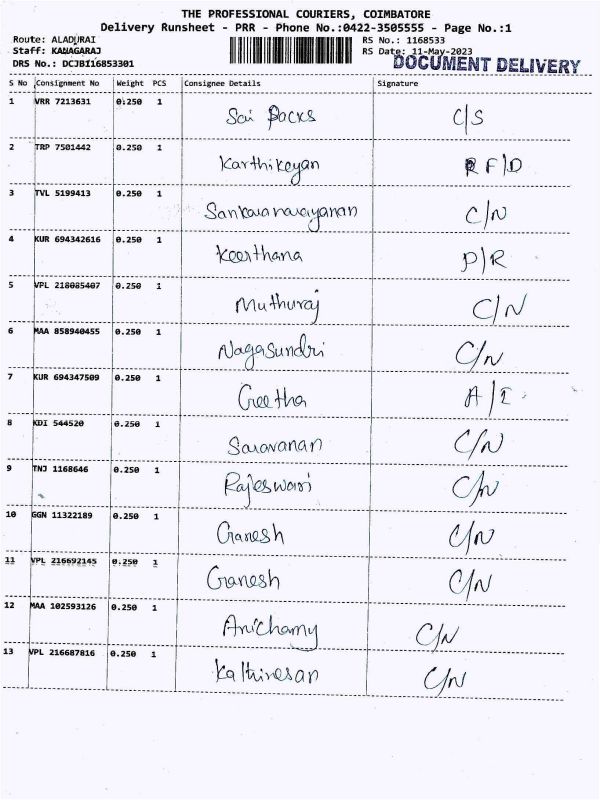 THE PROFESSIONAL COURIERS, COIMBATORE
Delivery Runsheet - PRR - Phone No.:0422-3505555 - Page No.:1
Route: ALADURAI RS No.: 1168533
Staff: KANAGARAJ RS Date: 11-May-2023
DRS No.: DCJBI16853301 DOCUMENT DELIVERY
S No Consignment No Weight PCS Consignee Details Signature
1 VRR 7213631 0.250 1 Sai Packs C/S
2 TRP 7501442 0.250 1 Karthikeyan RF/D
3 TVL 5199413 0.250 1 Sankaranarayanan C/N
4 KUR 694342616 0.250 1 Keerthana P/R
5 VPL 218085407 0.250 1 Muthuraj C/N
6 MAA 858940455 0.250 1 NagaSundri C/N
7 KUR 694347509 0.250 1 Geetha A/I
8 KDI 544520 0.250 1 Saravanan C/N
9 TNJ 1168646 0.250 1 Rajeswari C/N
10 GGN 11322189 0.250 1 Ganesh C/N
11 VPL 216692145 0.250 1 Ganesh C/N
12 MAA 102593126 0.250 1 Anichamy C/N
13 VPL 216687816 0.250 1 Kathiresan C/N